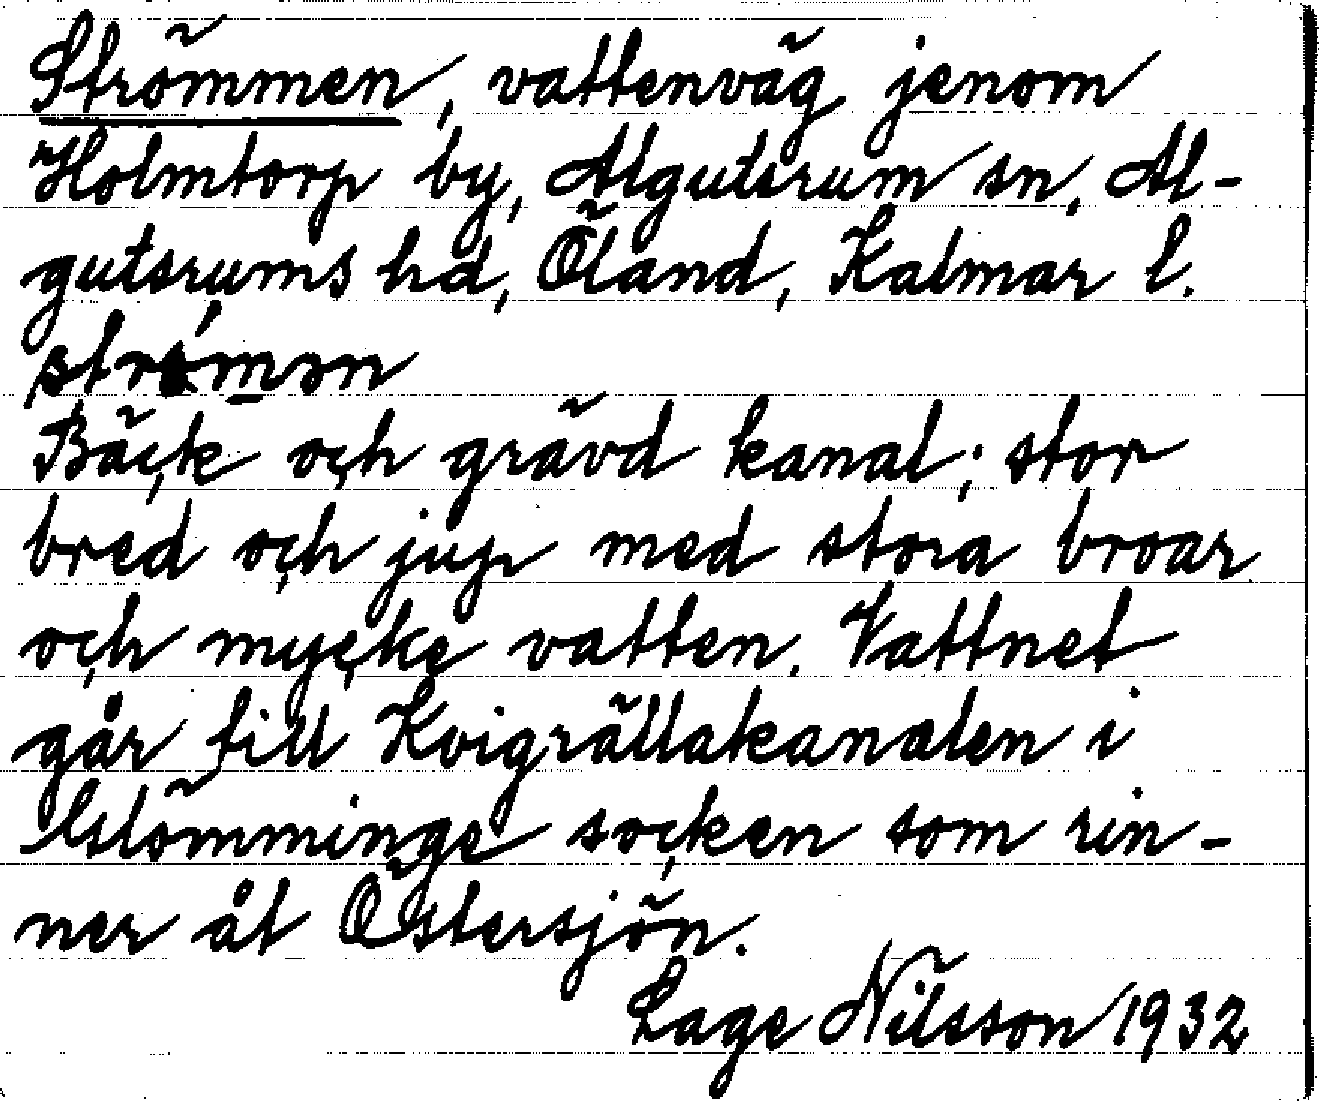 Strömmen, vattenväg jenom
Holmtorp by, Algutsrum sn, Al-
gutsrums hd, Öland, Kalmar l.
Bäck och grävd kanal; stor
bred och jup med stora broar
och mycke vatten. Vattnet
går till Kvigrällakanalen i
Glömminge socken som rin-
ner åt Östersjön.
Lage Nilsson 1932